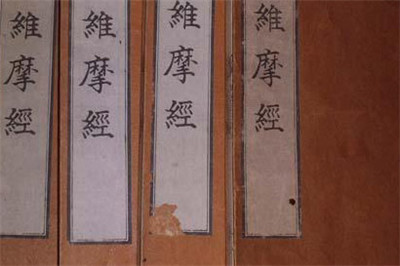 維摩經
維摩經
維摩經
維摩經